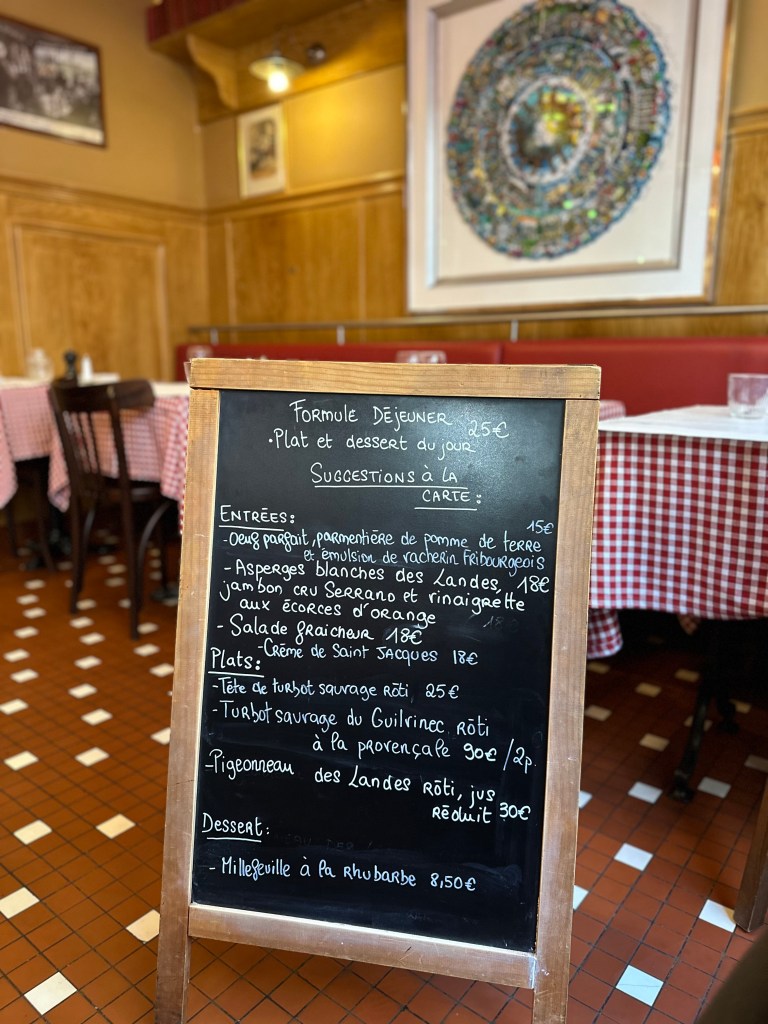 FORMULE DÉJEUNER 25€
•Plat et dessert du jour
SUGGESTIONS à LA
CARTE :
ENTRÉES :
15€
-Oeuf parfait, parmentière de pomme de terre
et émulsion de vacherin Fribourgeois
- Asperges blanches des Landes, 18€
jambon cru Serrano et vinaigrette
aux écorces d'orange
- Salade fraicheur 18€
-Crème de Saint Jacques 18€
Plats :
-Tête de turbot sauvage rôti 25€
-Turbot sauvage du Guilvinec rôti
à la provençale 90€ /2p.
-Pigeonneau des Landes rôti, jus
réduit 30€
Dessert :
- Millefeuille à la rhubarbe 8,50€